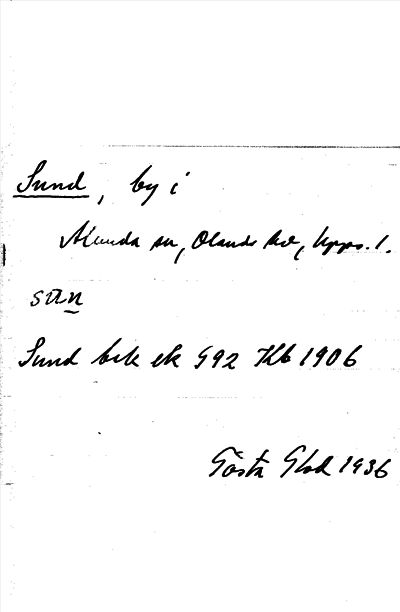 Sund, by i
Alunda sn, Olands hd, Upps. l.
sun
Sund bek ek 592 Kb 1906
Gösta
1936